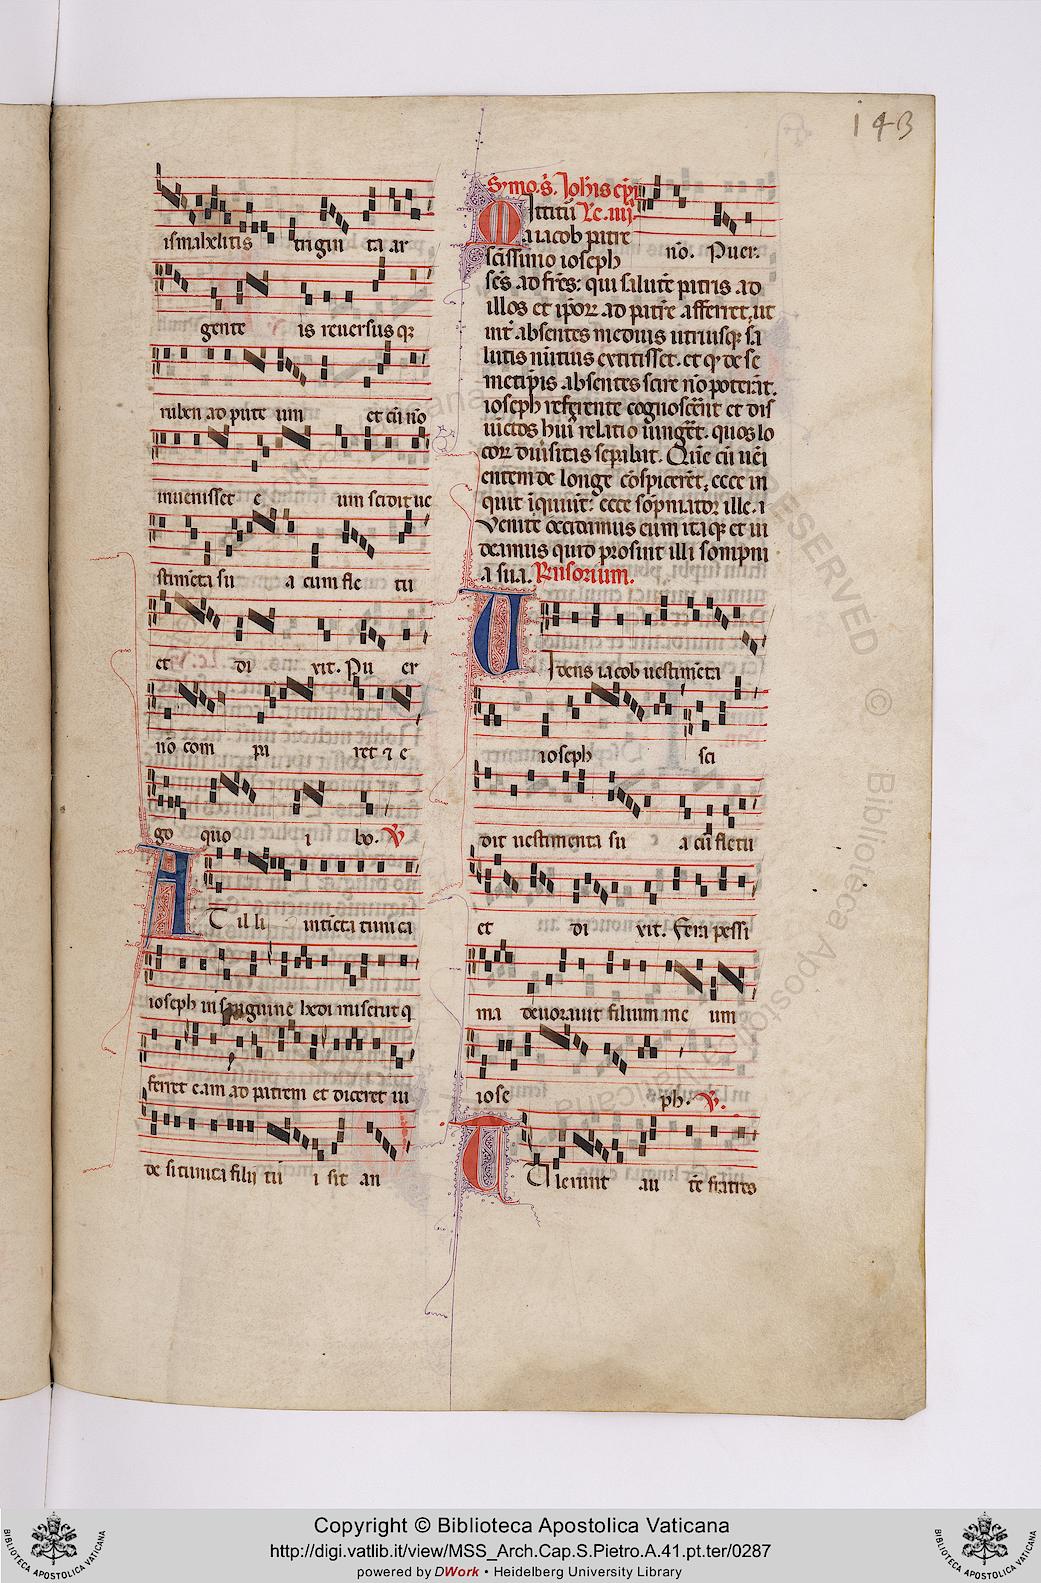 143
ismahelitis triginta ar
gente is reuersus qȝ
ruben ad pute um et cū nō
inuenisset e um scidit ue
stimēta su a cum fle tu
et di xit. Pu er
nō com pa ret ⁊ e
go quo i bo. ℣
At illi intīcta tunica
ioseph in sanguine hedi miserūt q
ferret eam ad patrem et diceret ui
de si tunica filij tui i sit an
nō. Puer.
Symo. s. Ioh̄is ep̄i
Lc. iiij.
M a iacob patre
sc̄issimo ioseph
ad fr̄es: qui salutē patris ad
illos et ip̄oꝝ ad patrē afferret, ut
int̄ absentes medius utriusqȝ sa
lutis nūtius extitisset. et qd̄ de se
metip̄is absentes scire nō poterāt.
ioseph referente cognoscēnt et dis
iūctos hui relatio iungēt. quos lo
coꝝ diuisitas sepabat. Que cū uēi
entem de longe cōspicerēt, ecce in
quit ecce sōpniator ille. i
Venite occidamus eum itaqȝ et ui
deamus quid prosint illi sompni
a sua. Rn̄sorium.
Uidens iacob uestimēta
ioseph sci
dit uestimenta su a cū fletu
et di xit. Fera pessi
ma deuorauit filium me um
iose ph. ℣.
Tulerunt au tē fratres
Copyright © Biblioteca Apostolica Vaticana
http://digi.vatlib.it/view/MSS_Arch.Cap.S.Pietro.A.41.pt.ter/0287
powered by DWork • Heidelberg University Library